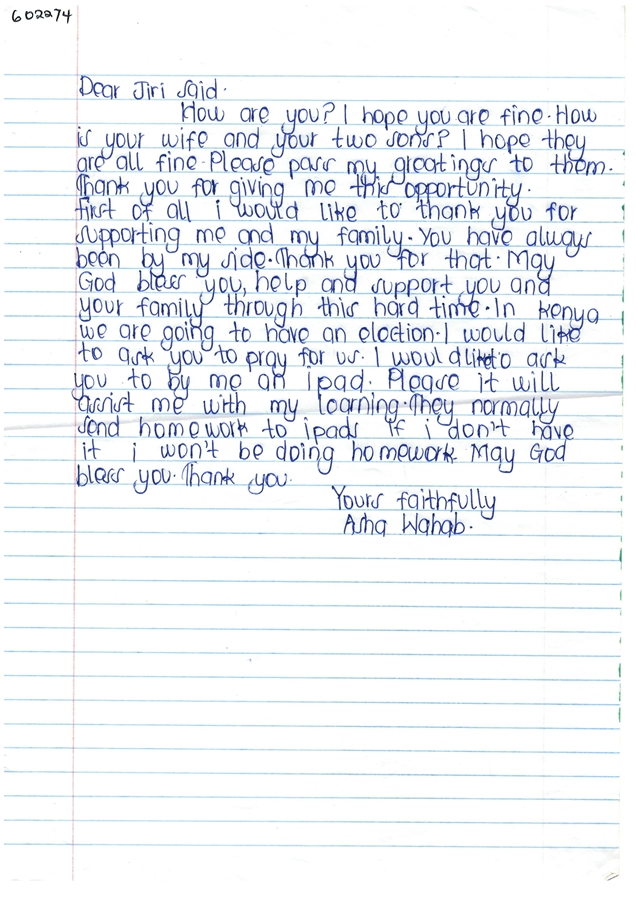 602274
Dear Jiri Said.
How are you? I hope you are fine. How
is your wife and your two sons? I hope they
are all fine. Please pass my greatings to them.
Thank you for giving me this opportunity.
first of all i would like to thank you for
supporting me and my family. You have always
been by my side. Thank you for that. May
God bless you, help and support you and
your family through this hard time. In kenya
we are going to have an election. I would like
to ask you to pray for us. I would liketo ask
you to by me an ipad. Please it will
assist me with my learning. They normally
send homework to ipads if i don't have
it i won't be doing homework May God
bless you. Thank you.
Yours faithfully
Asha Wahab.